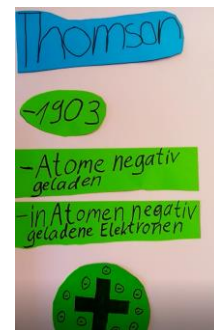 Thomson
-1903
-Atome negativ
geladen
-in Atomen negativ
geladene Elektronen